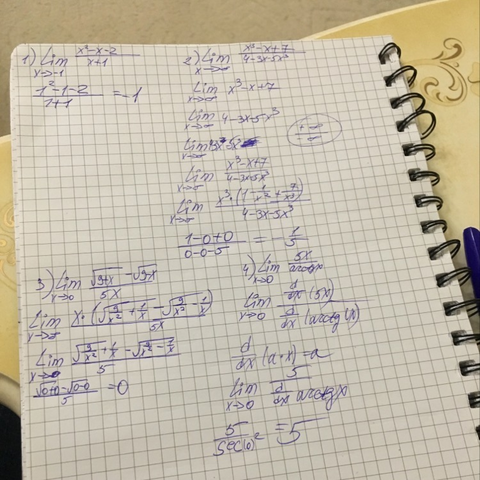 1) Lim x→-1 x²-x-2 / x+1
1²-1-2 / 1+1 = -1
2) Lim x→∞ x³-x+7 / 4-3x-5x³
Lim x→∞ x³-x+7
Lim x→∞ 4-3x-5x³
Lim x→∞
+∞ / -∞
Lim x→∞ x³-x+7 / 4-3x-5x³
Lim x→∞ x³·(1-1/x²+7/x³) / 4-3x-5x³
1-0+0 / 0-0-5 = 1/5
3) Lim x→0 √9+x - √9-x / 5x
Lim x→∞ x·(√9/x²+1/x - √9/x²-1/x) / 5x
Lim √9/x²+1/x - √9/x²-1/x / 5
√0+0-√0-0 / 5 = 0
4) Lim x→0 5x / arctgx
Lim x→0 d/dx (5x) / d/dx (arctg(x))
d/dx (a·x) = a
Lim x→0 5 / d/dx arctgx
5 / = 5